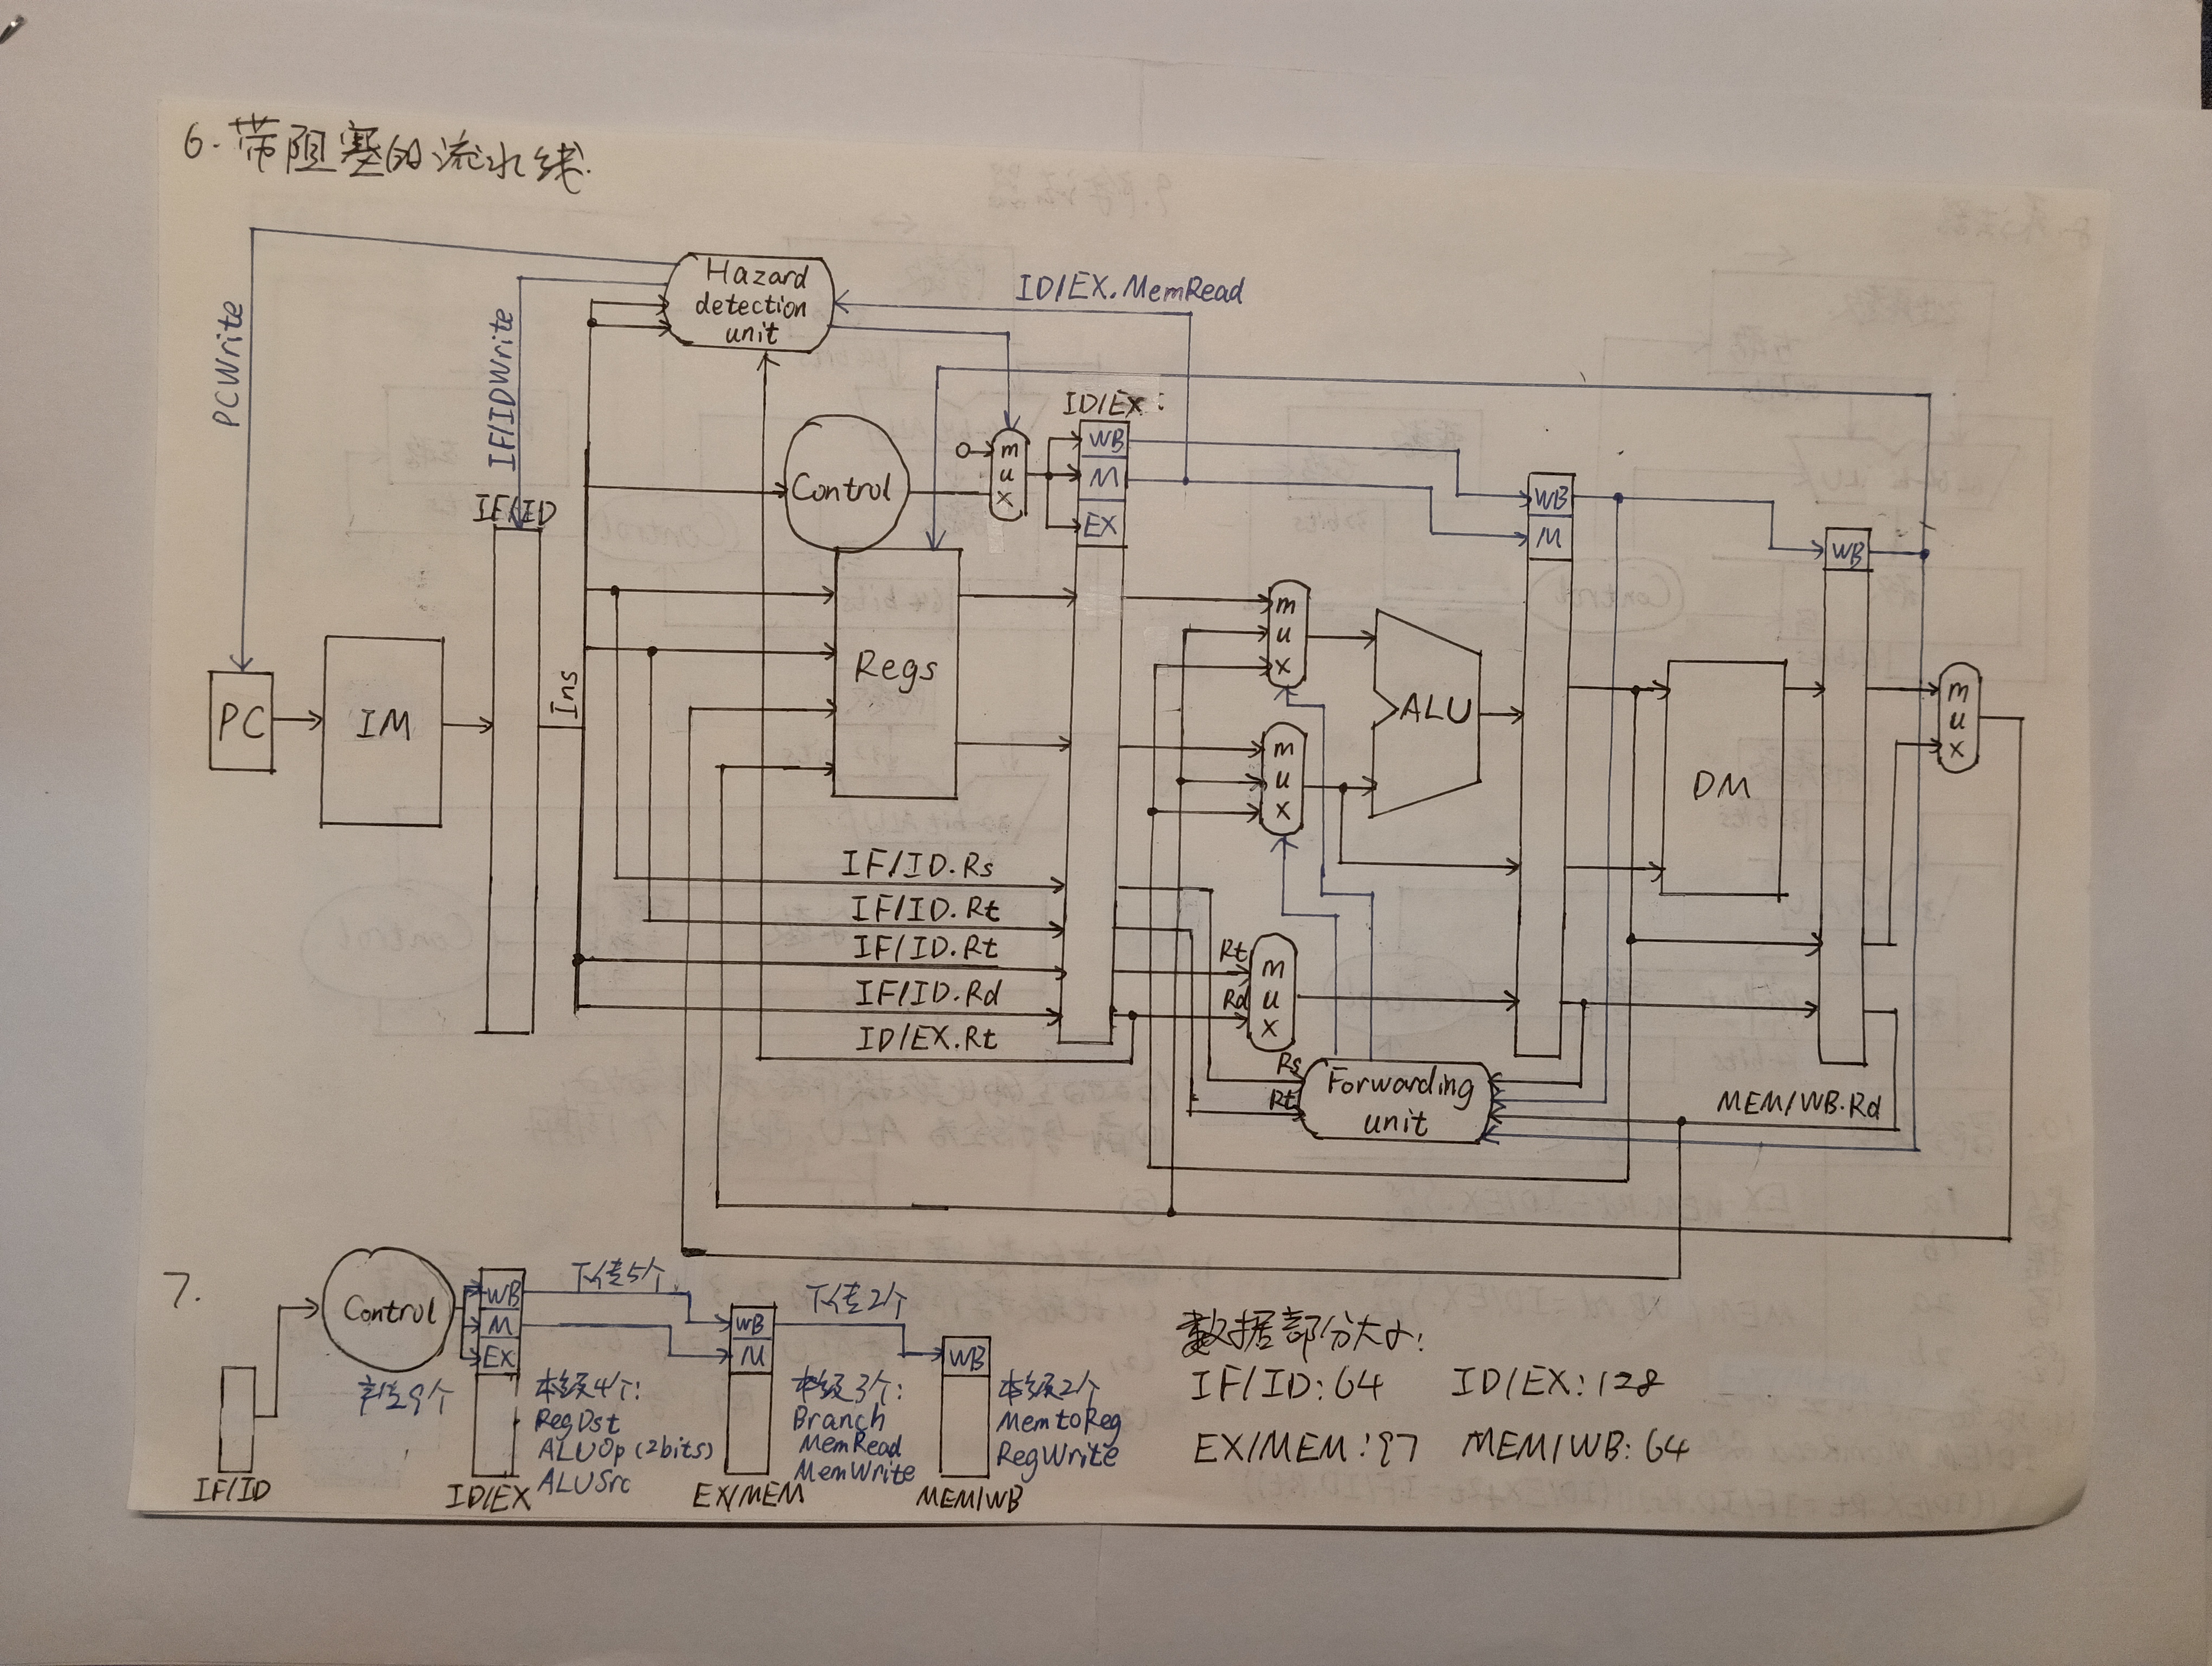 6. 带阻塞的流水线.
Hazard
detection
unit
ID/EX.MemRead
PCWrite
IF/IDWrite
ID/EX:
Control
0
mux
WB
M
EX
IF/ID
WB
M
WB
Ins
PC
IM
Regs
mux
mux
ALU
DM
mux
IF/ID.Rs
IF/ID.Rt
IF/ID.Rt
IF/ID.Rd
ID/EX.Rt
Rt
Rd
mux
Rs
Rt
Forwarding
unit
MEM/WB.Rd
7.
Control
WB
M
EX
下传5个
WB
M
下传2个
WB
9个
本级4个:
RegDst
ALUOp (2bits)
ALUSrc
本级3个:
Branch
MemRead
MemWrite
本级2个
MemtoReg
RegWrite
IF/ID
ID/EX
EX/MEM
MEM/WB
数据部分大小:
IF/ID: 64 ID/EX: 128
EX/MEM: 97 MEM/WB: 64